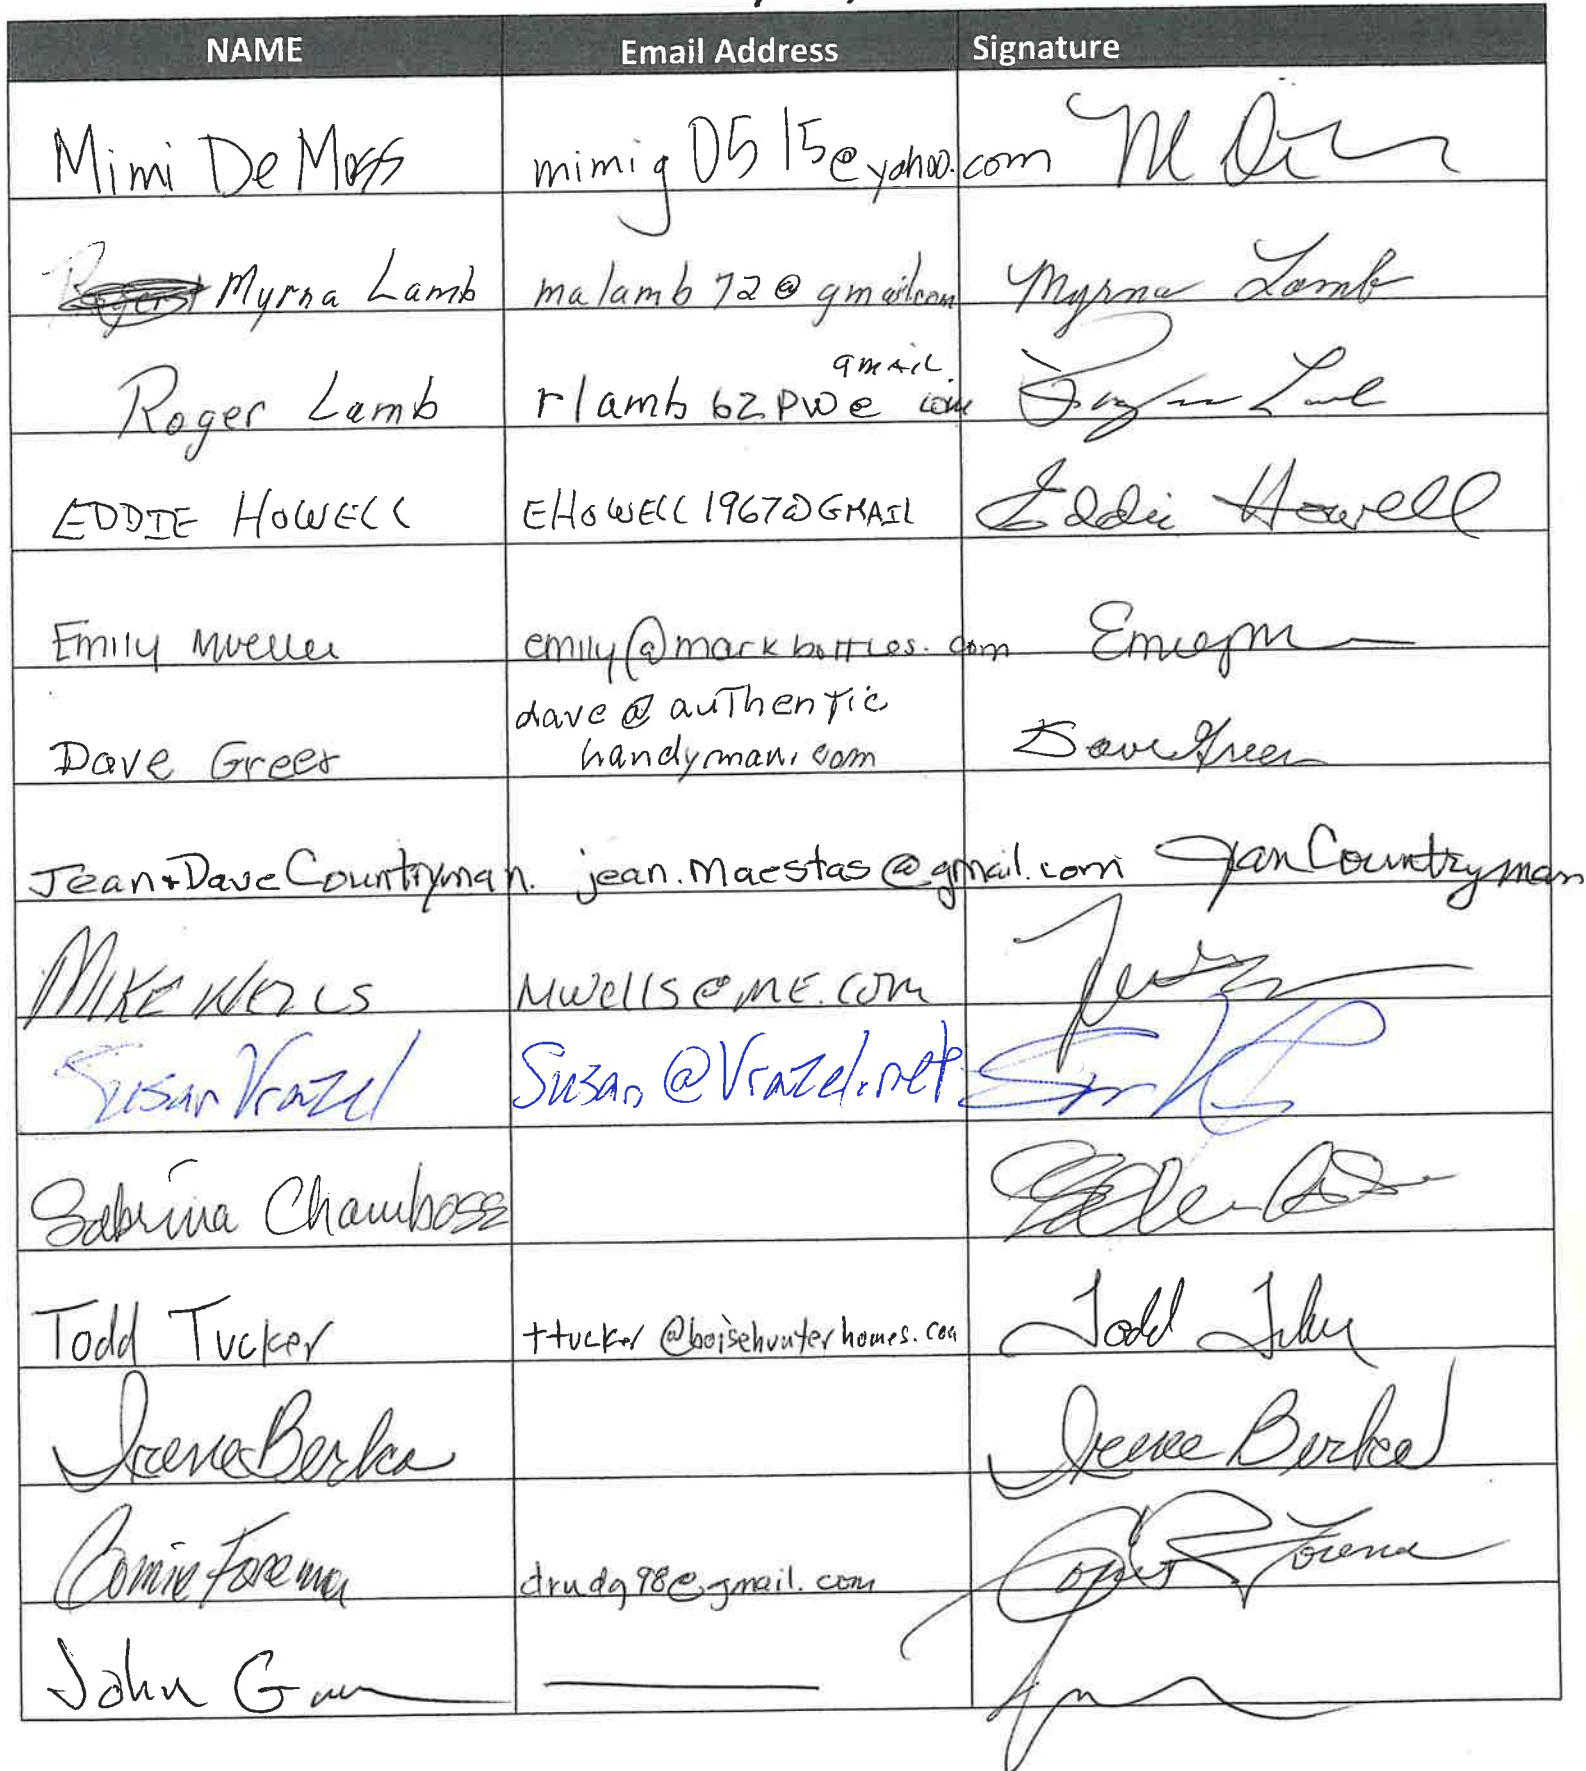 NAME Email Address Signature
Mimi DeMoss mimig0515@yahoo.com
Myrna Lamb malamb72@gmail.com Myrna Lamb
gmail.
Roger Lamb rlamb62pw@ com
EDDIE HOWELL EHOWELL1967@GMAIL Eddie Howell
Emily Mueller emily@markbottles.com
dave@authentic
Dave Greer handyman.com Dave Greer
Jean+Dave Countryman. jean.maestas@gmail.com Jean Countryman
MIKE WELLS MWells@ME.com
Susan Vrazel Susan@Vrazel.net
Sabrina
Todd Tucker ttucker@boisehunterhomes.com Todd
Irene Berka Irene Berka
Connie Foreman drudg98@gmail.com
John